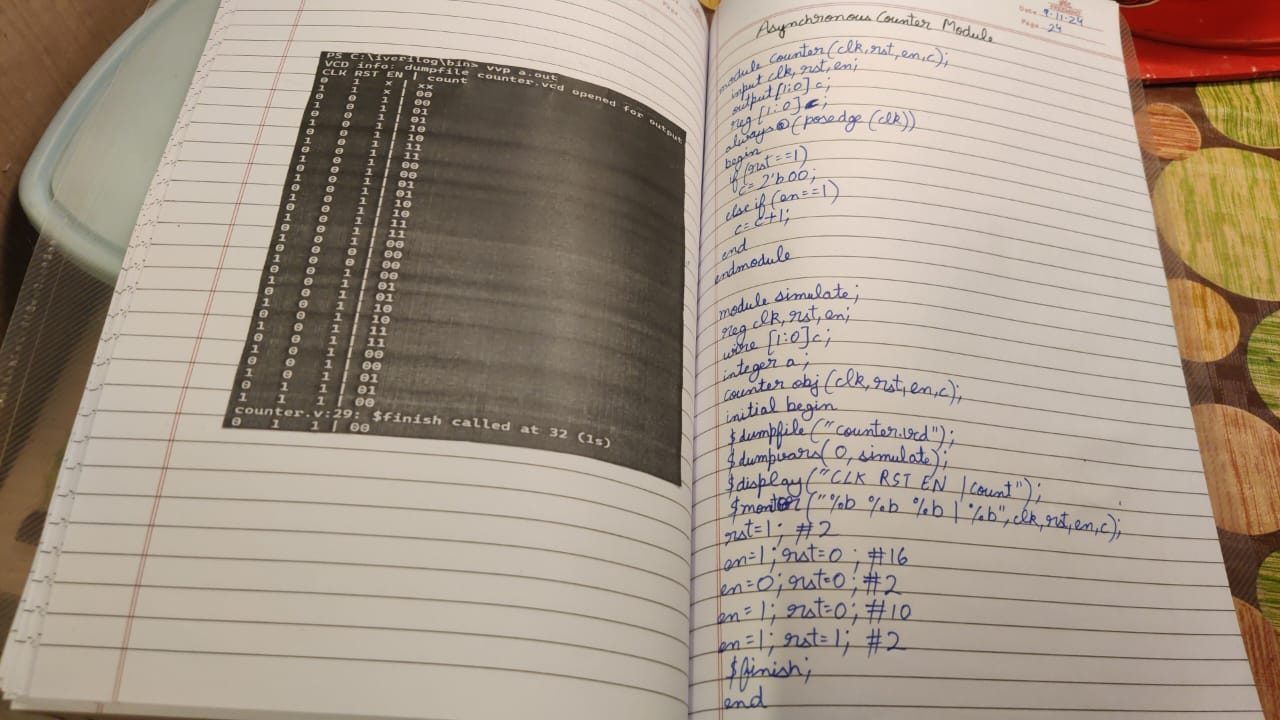 Date 9.11.24
Page 24
PS C:\iverilog\bin> vvp a.out
VCD info: dumpfile counter.vcd opened for output
CLK RST EN | count
0 1 x | xx
1 1 x | 00
0 0 1 | 00
1 0 1 | 01
0 0 1 | 01
1 0 1 | 10
0 0 1 | 10
1 0 1 | 11
0 0 1 | 11
1 0 1 | 00
0 0 1 | 00
1 0 1 | 01
0 0 1 | 01
1 0 1 | 10
0 0 1 | 10
1 0 1 | 11
0 0 1 | 11
1 0 1 | 00
0 0 0 | 00
1 0 0 | 00
0 0 1 | 00
1 0 1 | 01
0 0 1 | 01
1 0 1 | 10
0 0 1 | 10
1 0 1 | 11
0 0 1 | 11
1 0 1 | 00
0 0 1 | 00
1 0 1 | 01
0 1 1 | 01
1 1 1 | 00
counter.v:29: $finish called at 32 (1s)
0 1 1 | 00
Asynchronous Counter Module
module counter(clk,rst,en,c);
input clk,rst,en;
output [1:0] c;
reg [1:0] c;
always@(posedge (clk))
begin
if (rst==1)
c=2'b00;
else if (en==1)
c=c+1;
end
endmodule
module simulate;
reg clk,rst,en;
wire [1:0]c;
integer a;
counter obj(clk,rst,en,c);
initial begin
$dumpfile("counter.vcd");
$dumpvars(0,simulate);
$display("CLK RST EN |Count");
$monitor("%b %b %b | %b",clk,rst,en,c);
rst=1; #2
en=1;rst=0;#16
en=0;rst=0;#2
en=1; rst=0; #10
en=1; rst=1; #2
$finish;
end